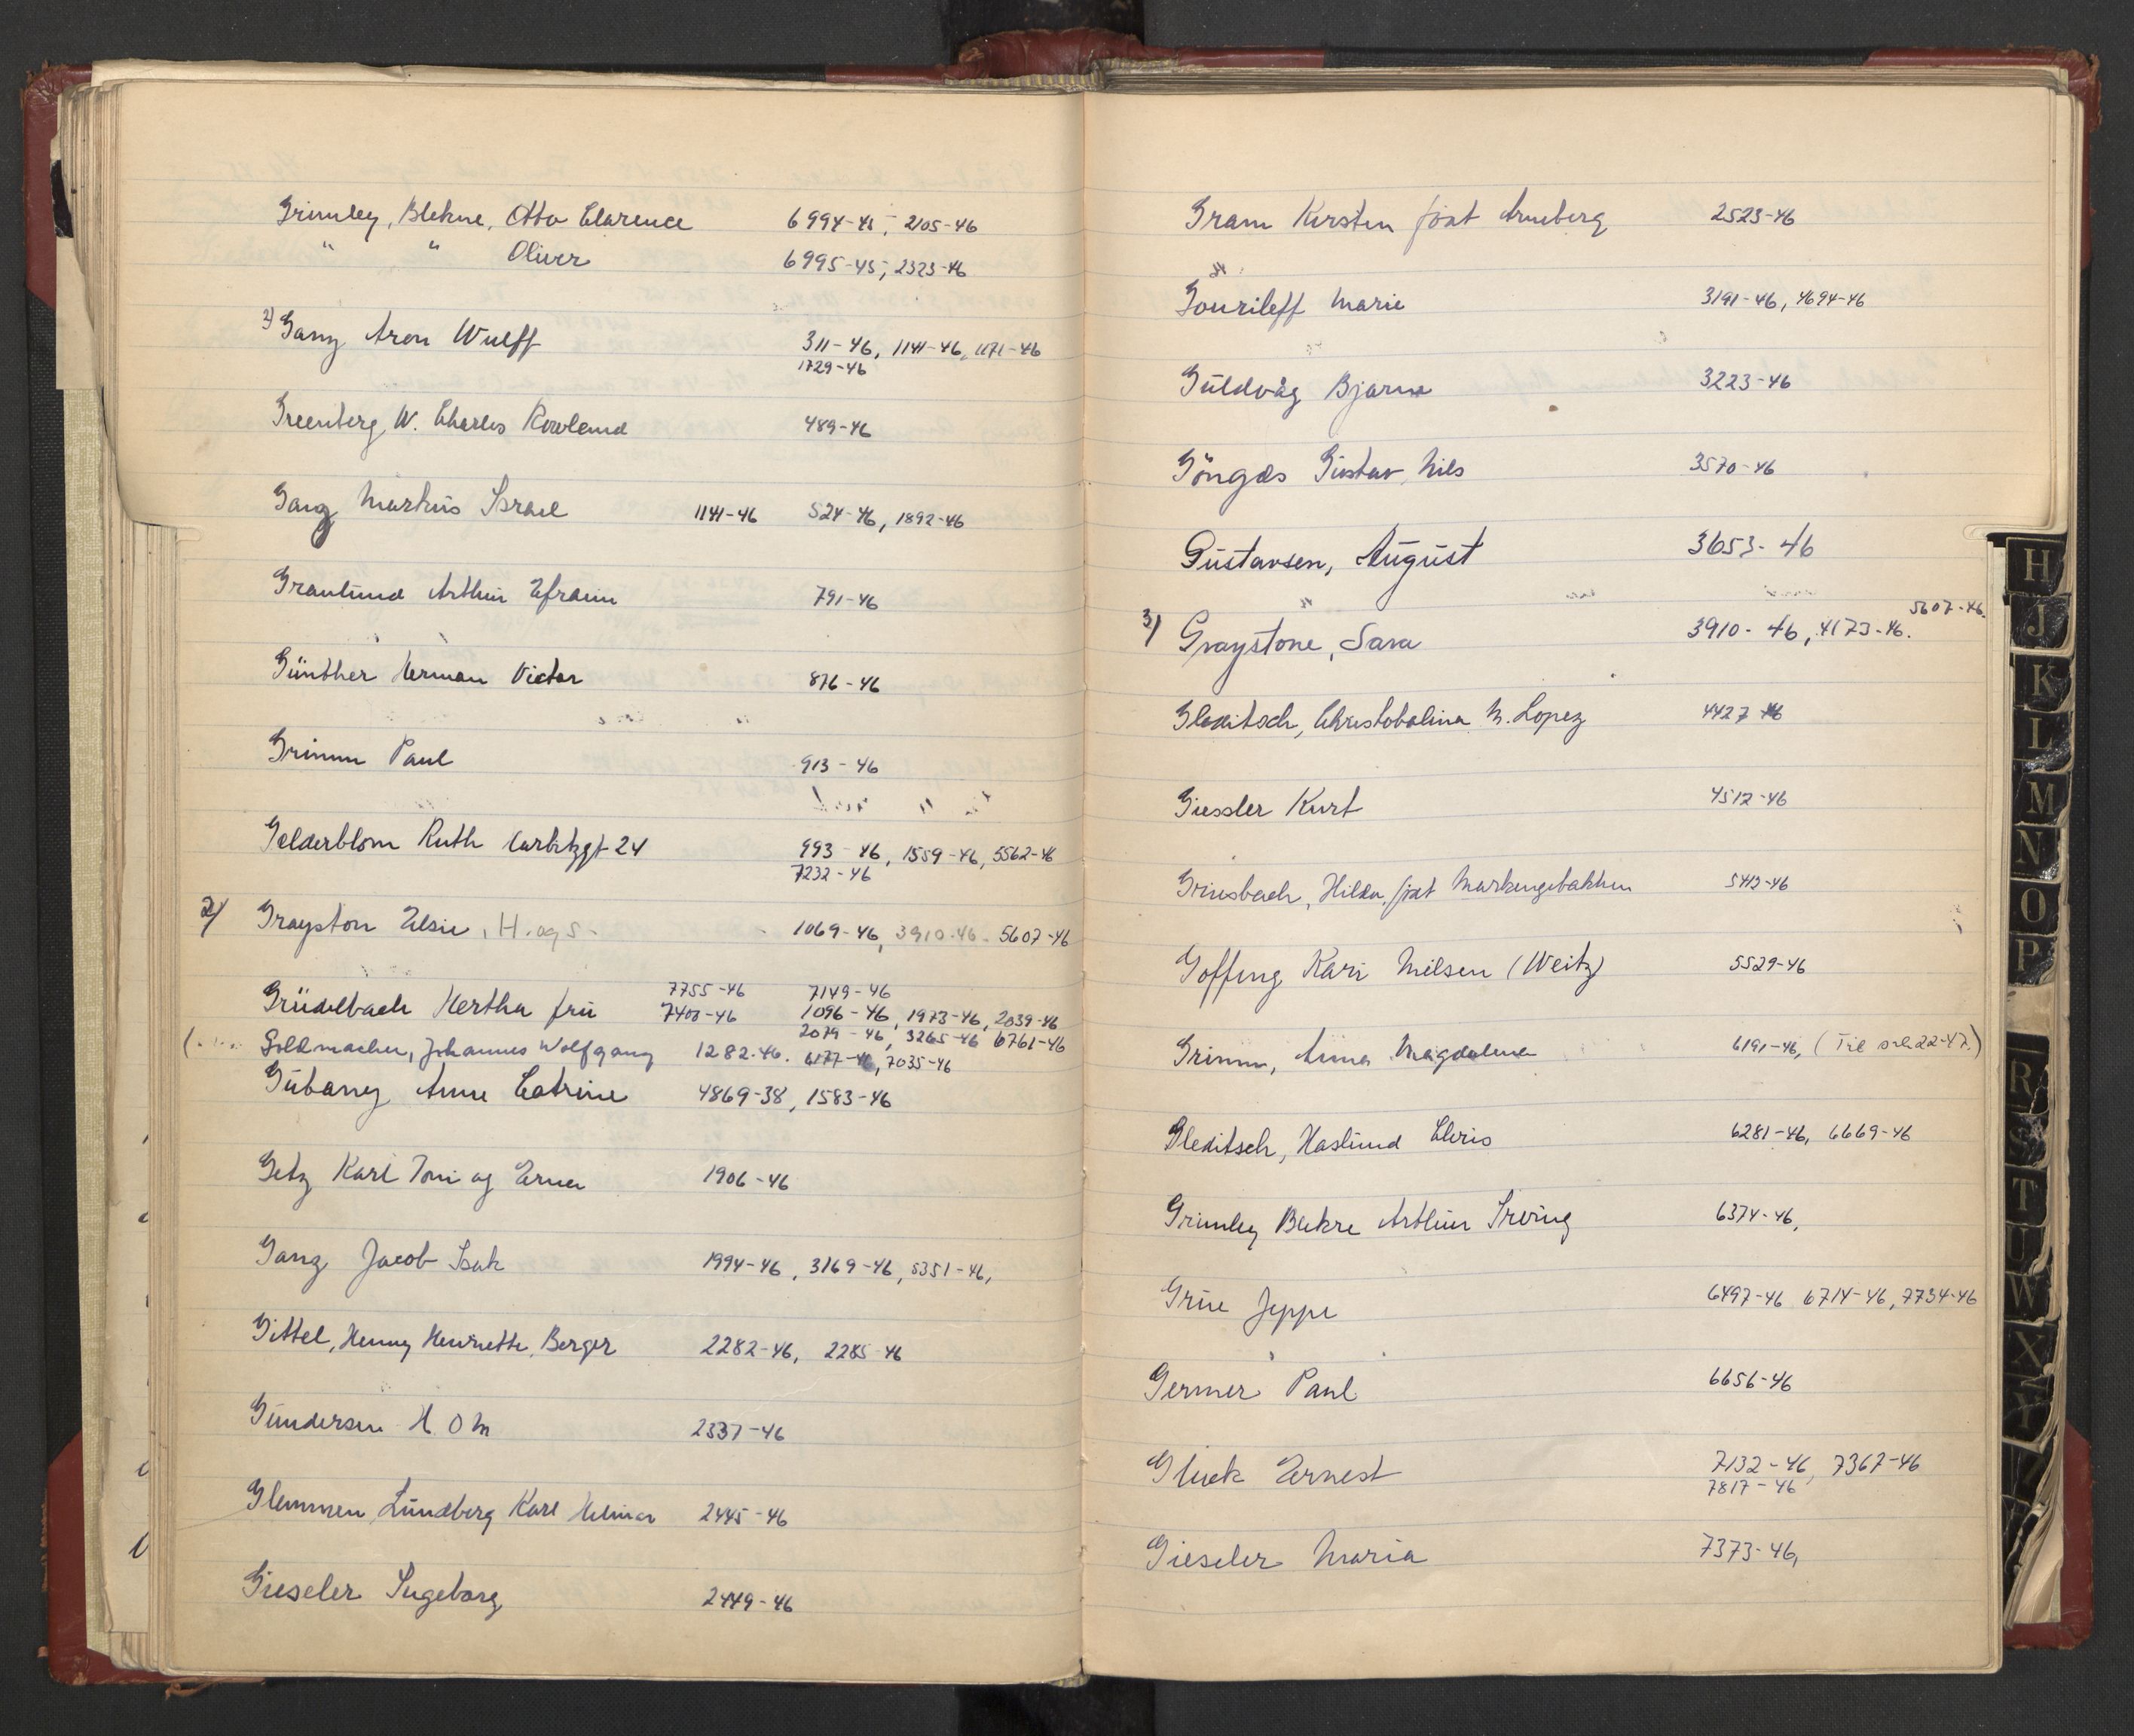 Grimley, Blekne, Otto Clarence 6994-45, 2105-46
" " Oliver 6995-45, 2323-46
2) Ganz Aron Wulff 311-46, 1141-46, 1171-46
1729-46
Greenberg, W. Charles Rowland 489-46
Ganz Markus Israel 1141-46 524-46, 1892-46
Granlund Arthur Efraim 791-46
Günther Herman Victor 876-46
Grimm Paul 913-46
Gelderblom Ruth 24 993-46, 1559-46, 5562-46
7232-46
2) Grayston Elsie, H. og S. 1069-46, 3910-46. 5607-46
7755-46 7149-46
Grüdelbach Hertha fru 7400-46 1096-46, 1973-46, 2039-46
2079-46, 3265-46 6761-46
Goldmacher, Johannes Wolfgang 1282-46. 6177-46, 7035-46
Gubany Anne Catrine 4869-38, 1583-46
Getz Karl Toni og Erna 1906-46
Ganz Jacob Isak 1994-46, 3169-46, 5351-46,
Gittel, Henny Henriette, Berger 2282-46, 2285-46
Gundersen H O M 2337-46
Glemmen Lundberg Karl Helmer 2445-46
Gieseler Ingeborg 2449-46
Gram Kirsten født Arneberg 2523-46
Gourileff Marie 3191-46, 4694-46
Guldvåg Bjarne 3223-46
Göngas Gustav, Nils 3570-46
Gustavsen, August 3653-46
5607-46.
3) Graystone, Sara 3910-46, 4173-46.
Gleditsch, Christobalina M. Lopez 4427-46
Giessler Kurt 4512-46
Griesbach, Hilda, født Markengsbakken 5413-46
Goffeng Kari Nielsen (Weitz) 5529-46
Grimm, Anna Magdalena 6191-46, (Til 22-47.)
Gleditsch, Haslund Chris 6281-46, 6669-46
Grimley Blekre Arthur Irving 6374-46,
Grue Jeppe 6497-46 6714-46, 7734-46
Germer Paul 6656-46
Gluck Ernest 7132-46, 7367-46
7817-46
Gieseler Maria 7373-46,
H
J
K
L
M
N
O
P
R
S
T
U
W
X
Y